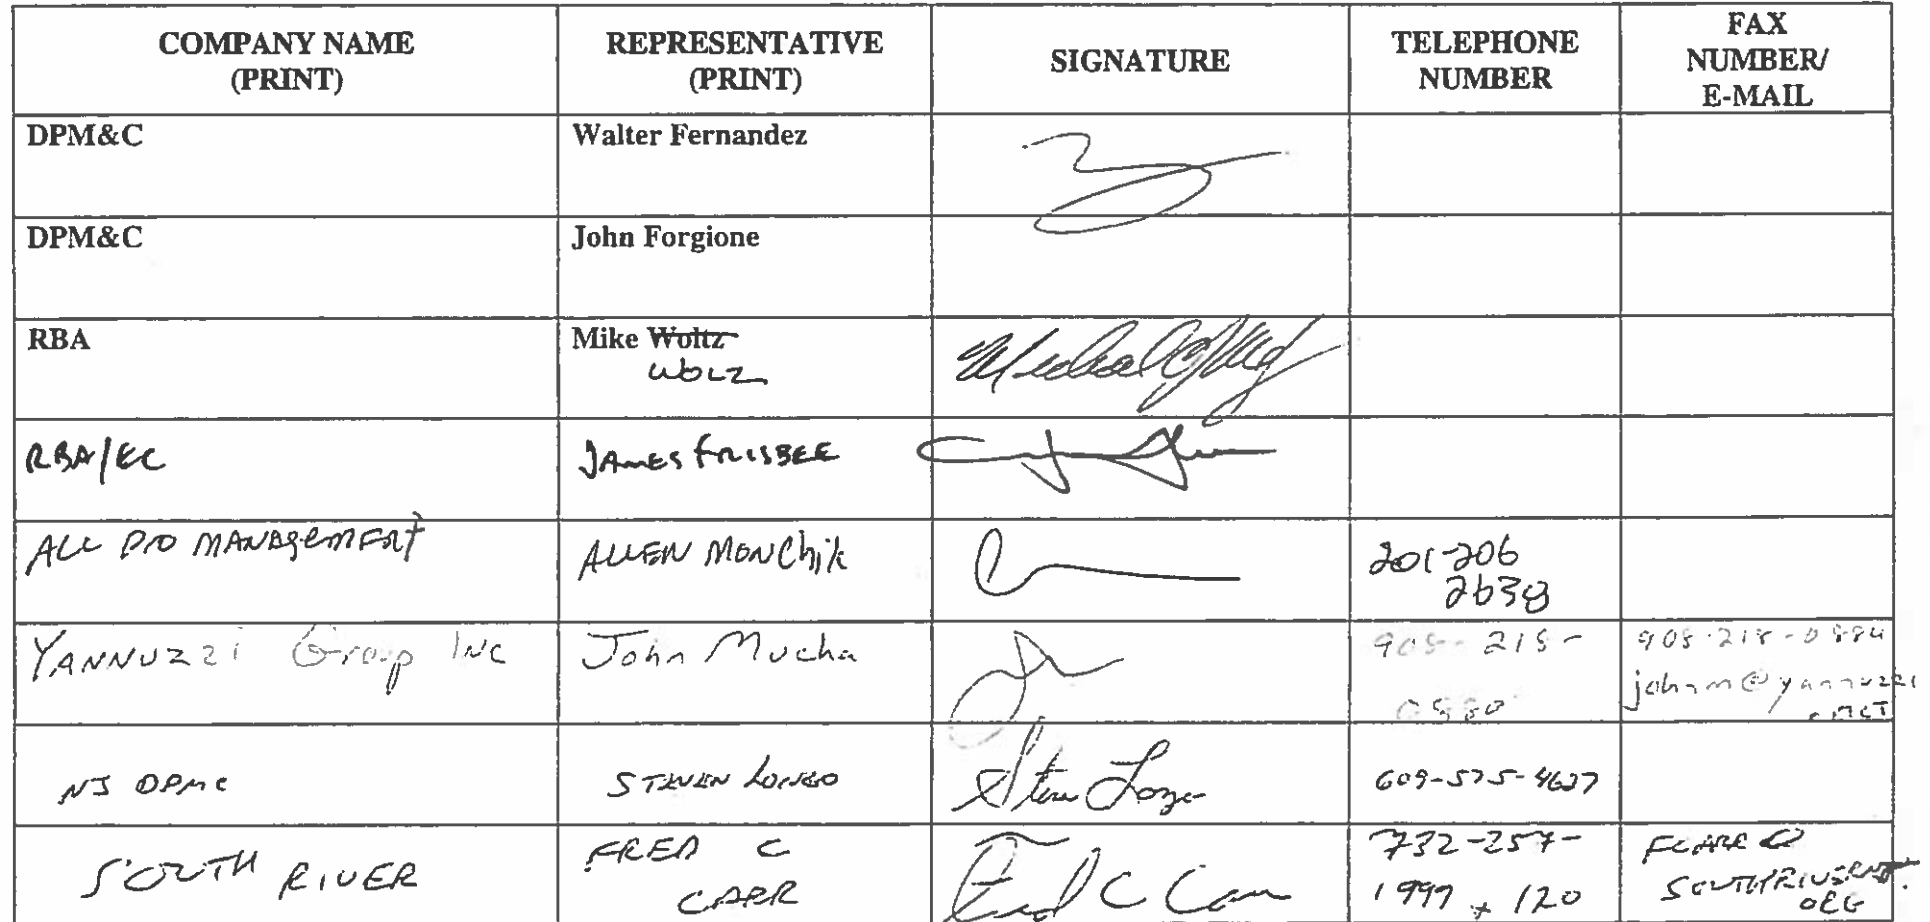 COMPANY NAME
(PRINT)
REPRESENTATIVE
(PRINT)
SIGNATURE
TELEPHONE
NUMBER
FAX
NUMBER/
E-MAIL
DPM&C
Walter Fernandez
DPM&C
John Forgione
RBA
Mike Woltz
WOLZ
RBA/EC
JAMES FRISBEE
ALL PRO MANAGEMENT
ALLEN MONChik
201-206
2638
YANNUZZI Group INC
John Mucha
908-218-
0880
908-218-0884
johnm@yannuzzi
.NET
NJ DPMC
STEVEN LONGO
Steve Longo
609-575-4637
SOUTH RIVER
FRED C
CARR
Fred C Carr
732-257-
1999 x 120
FCARR@
SOUTHRIVERNJ.
ORG